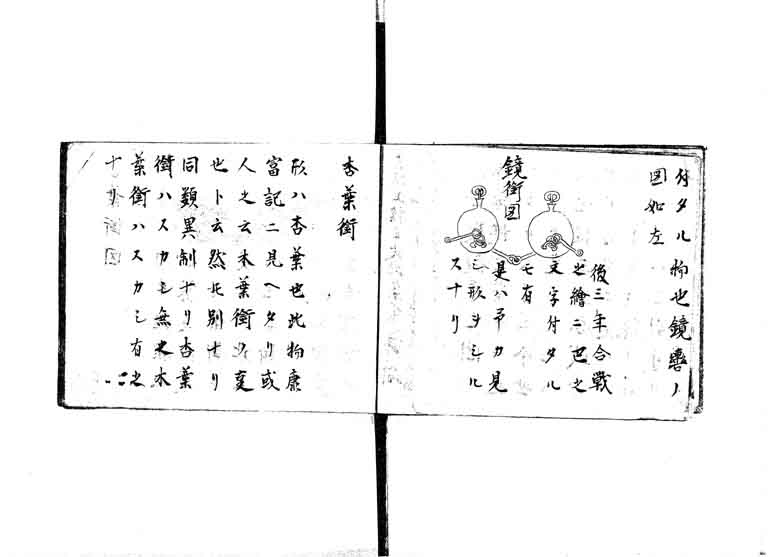 付タル物也鏡轡ノ
圖如左
鏡衘図
後三年合戰
之繪ニ巴之
文字付タル
モ有
是ハ吊カ見
シ形ヲシル
スナリ
杏葉衘
形ハ杏葉也此物康
富記ニ見ヘタリ或
人之云木葉衘ノ変
也ト云然𪜈別ナリ
同類異制ナリ杏葉
衘ハスカシ無之木
葉衘ハスカシ有之
ナリ